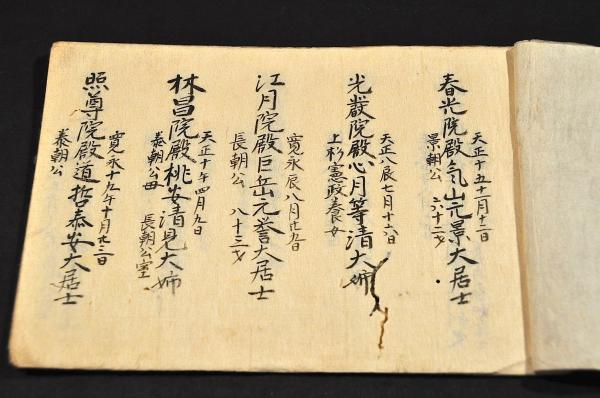 天正十五十一月十二日
春光院殿気山元景大居士
景朝公 六十二才
天正八辰七月十六日
光嶽院殿心月等清大姉
上杉憲政養女
寛永辰八月廿九日
江月院殿巨岳元誉大居士
長朝公 八十三才
天正十午四月九日
林昌院殿桃安清見大姉
泰朝公母 長朝公室
寛永十九午十月廿三日
照尊院殿道哲泰安大居士
泰朝公